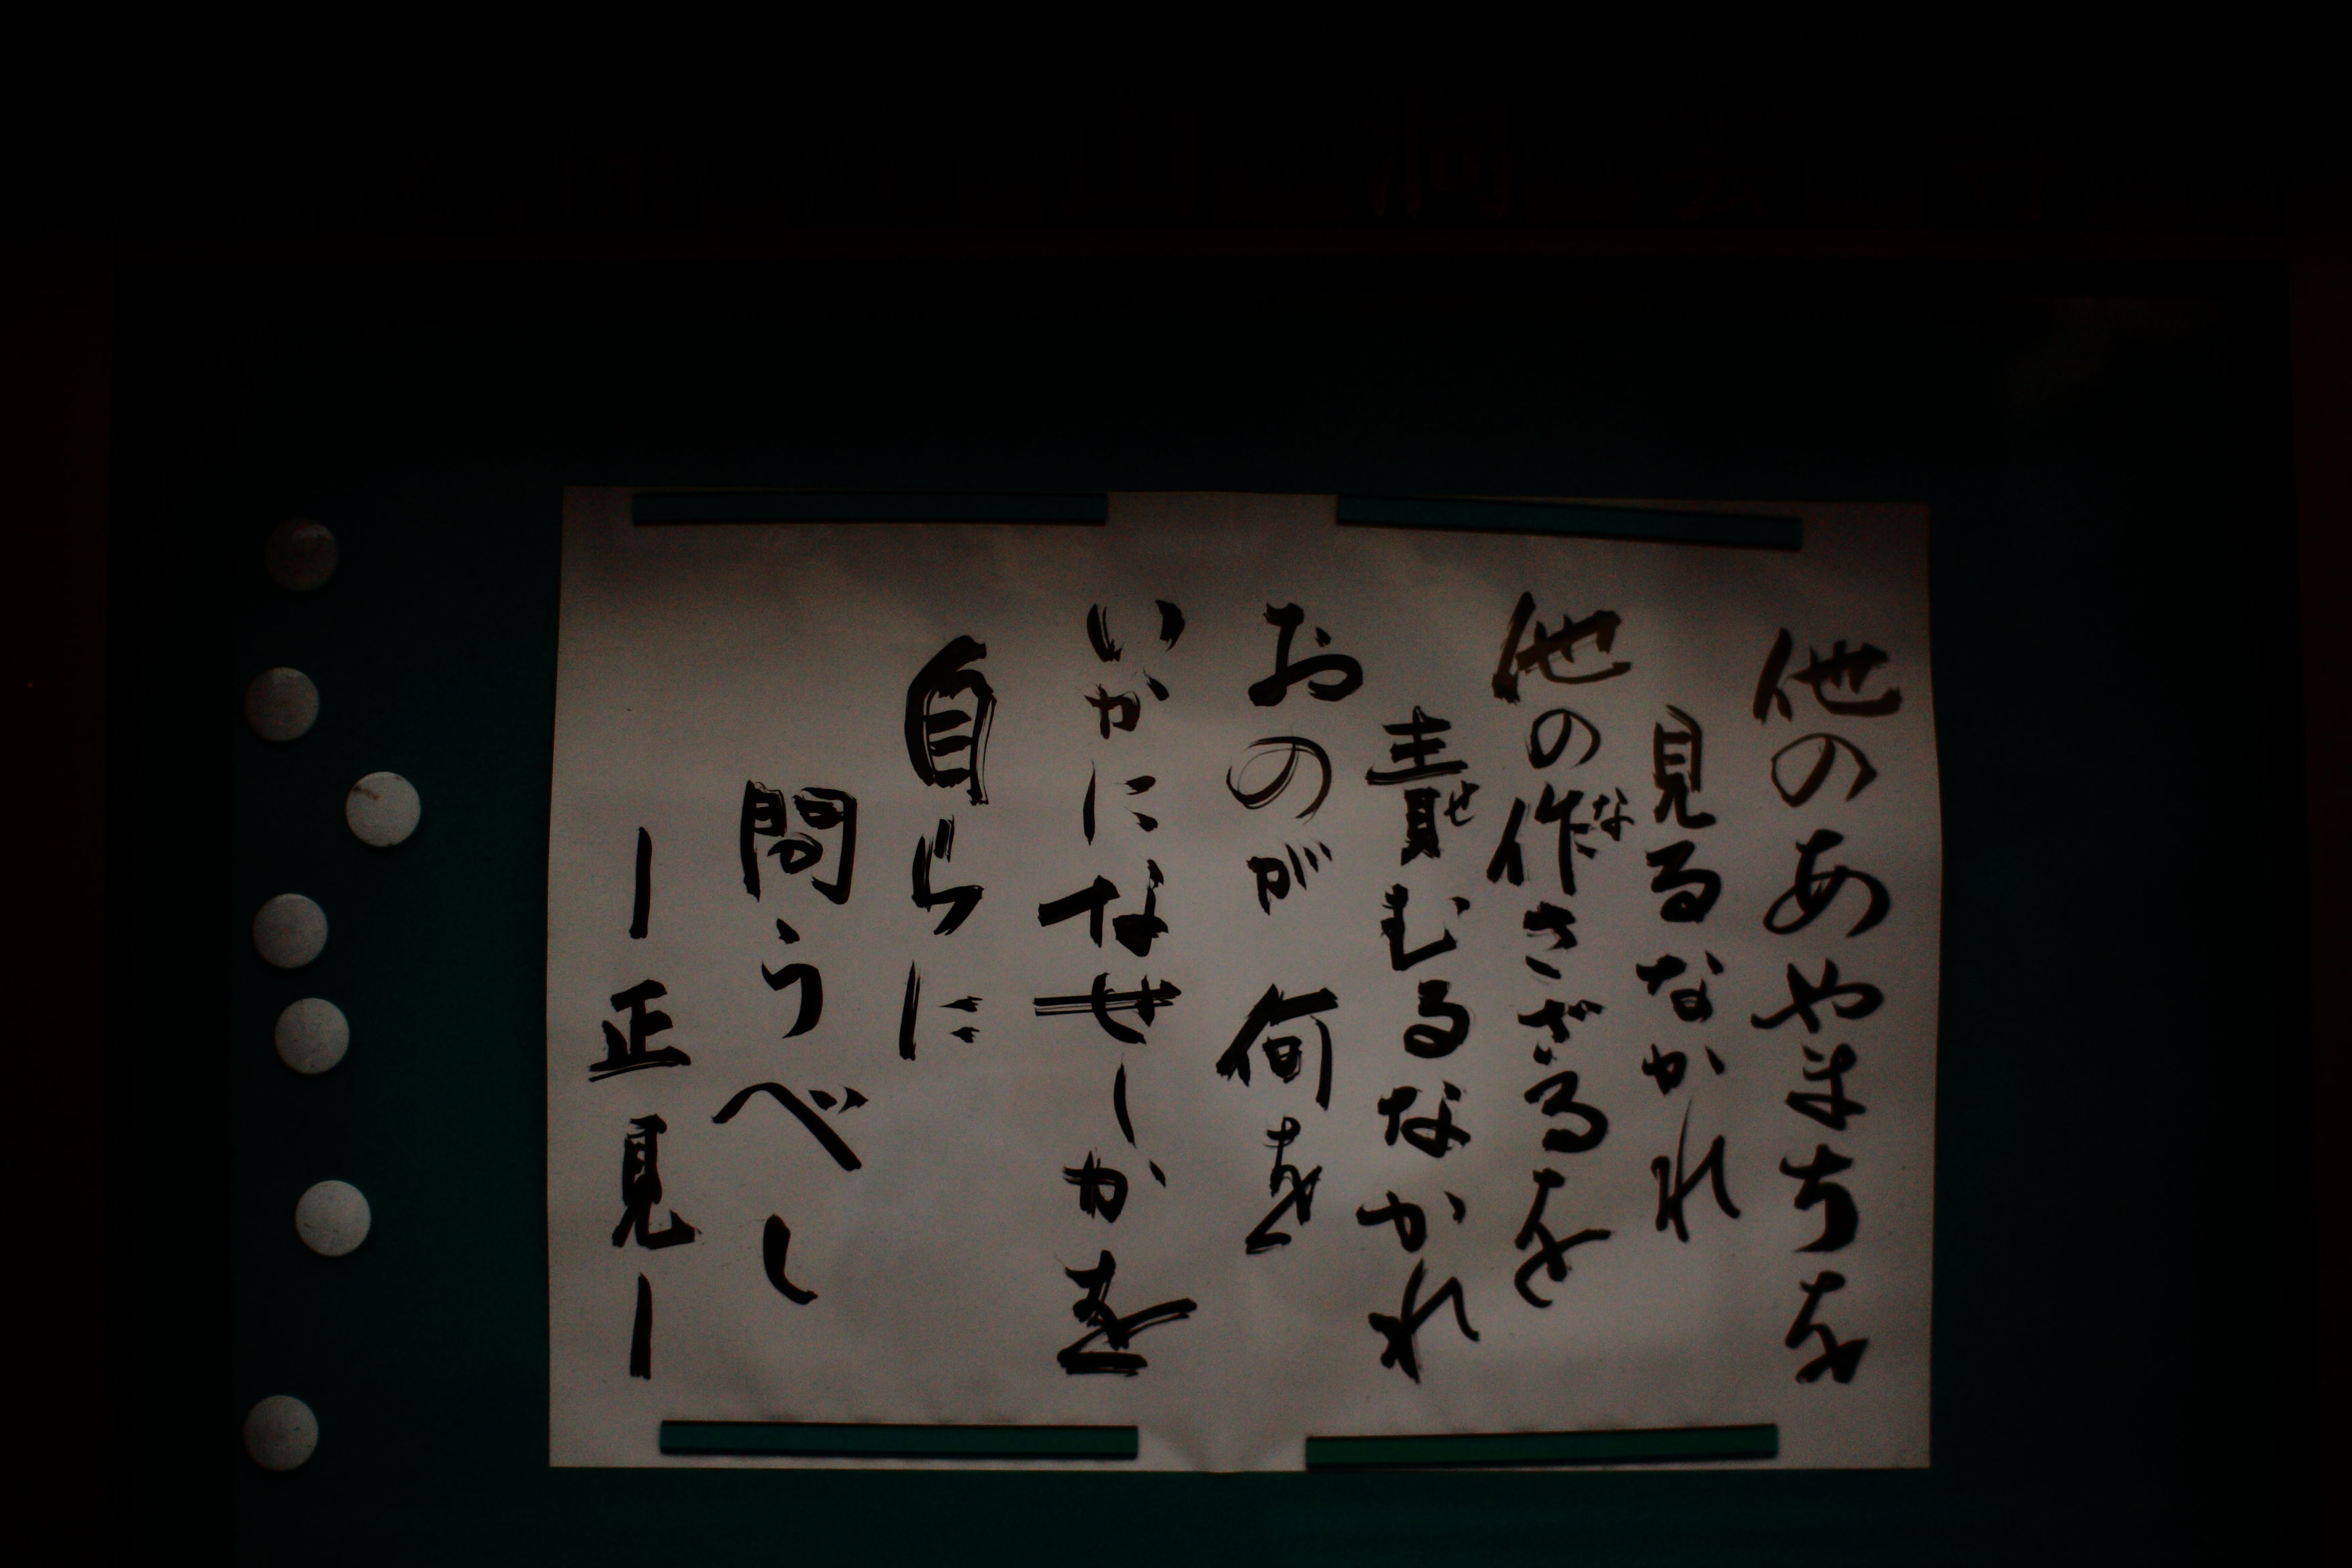 他のあやまちを
見るなかれ
他の作さざるを
な
責むるなかれ
せ
おのが何を
いかになせしかを
自らに
問うべし
―正見―